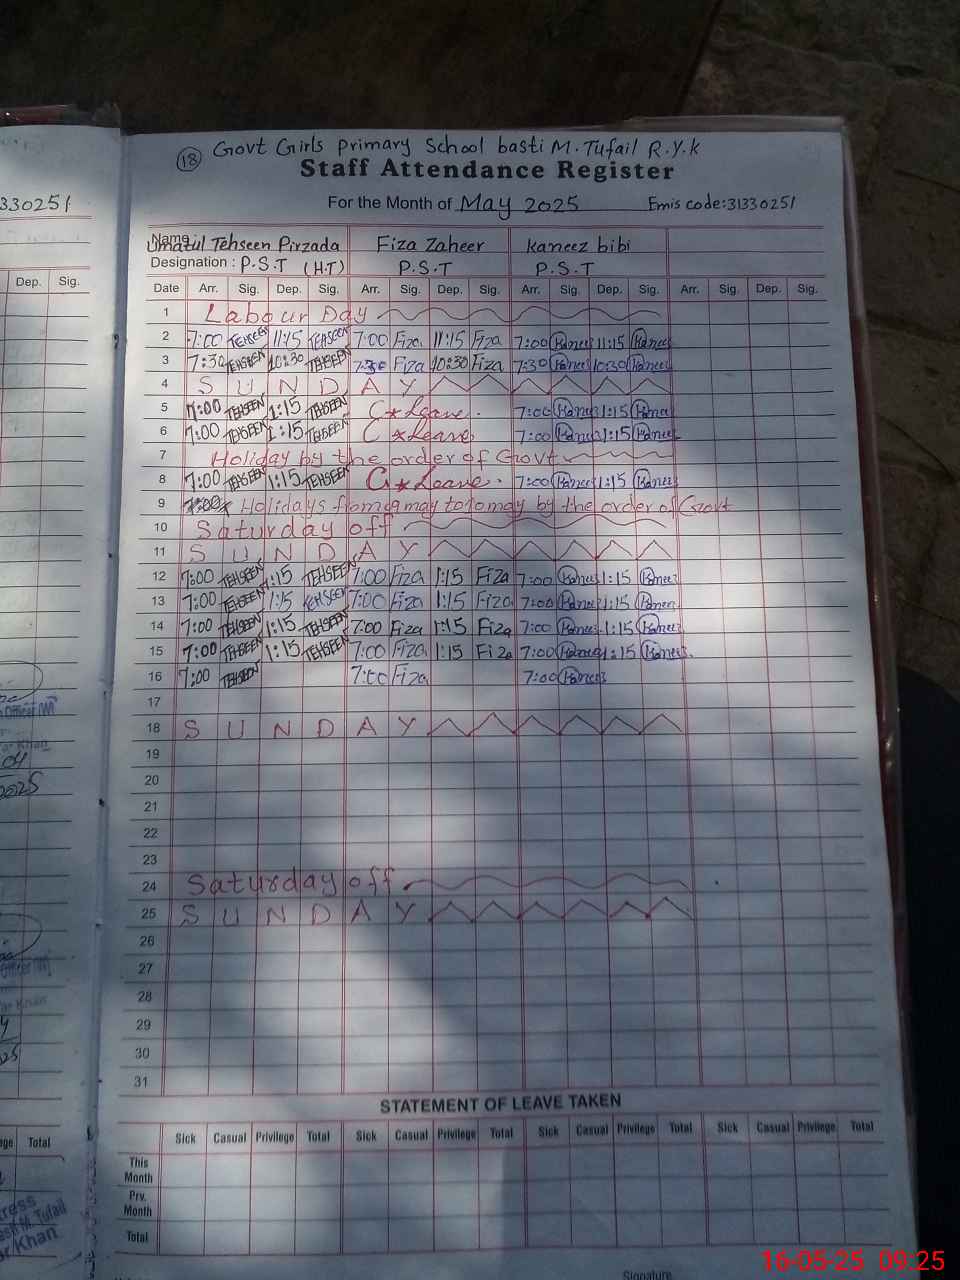 330251
Dep. Sig.
18 Govt Girls primary School basti M. Tufail R.Y.K
Staff Attendance Register
For the Month of May 2025 Emis code:31330251
Name Umatul Tehseen Pirzada Fiza Zaheer Kaneez bibi
Designation : P.S.T (H.T) P.S.T P.S.T
Date Arr. Sig. Dep. Sig. Arr. Sig. Dep. Sig. Arr. Sig. Dep. Sig. Arr. Sig. Dep. Sig.
1 Labour Day
2 7:00 TEHSEEN 11:15 TEHSEEN 7:00 Fiza 11:15 Fiza 7:00 Kaneez 11:15 Kaneez
3 7:30 TEHSEEN 10:30 TEHSEEN 7:30 Fiza 10:30 Fiza 7:30 Kaneez 10:30 Kaneez
4 SUNDAY
5 7:00 TEHSEEN 1:15 TEHSEEN C*Leave. 7:00 Kaneez 1:15 Kaneez
6 7:00 TEHSEEN 1:15 TEHSEEN C*Leave 7:00 Kaneez 1:15 Kaneez
7 Holiday by the order of Govt
8 7:00 TEHSEEN 1:15 TEHSEEN C*Leave. 7:00 Kaneez 1:15 Kaneez
9 7:00 Holidays from 9 may to 10 may by the order of Govt
10 Saturday off
11 SUNDAY
12 7:00 TEHSEEN 1:15 TEHSEEN 7:00 Fiza 1:15 Fiza 7:00 Kaneez 1:15 Kaneez
13 7:00 TEHSEEN 1:15 TEHSEEN 7:00 Fiza 1:15 Fiza 7:00 Kaneez 1:15 Kaneez
14 7:00 TEHSEEN 1:15 TEHSEEN 7:00 Fiza 1:15 Fiza 7:00 Kaneez 1:15 Kaneez
15 7:00 TEHSEEN 1:15 TEHSEEN 7:00 Fiza 1:15 Fiza 7:00 Kaneez 1:15 Kaneez
16 7:00 TEHSEEN 7:00 Fiza 7:00 Kaneez
17
18 SUNDAY
19
20
21
22
23
24 Saturday off
25 SUNDAY
26
27
28
29
30
31
STATEMENT OF LEAVE TAKEN
Sick Casual Privilege Total Sick Casual Privilege Total Sick Casual Privilege Total Sick Casual Privilege Total
This Month
Prv. Month
Total
Total
Signature
16-05-25 09:25